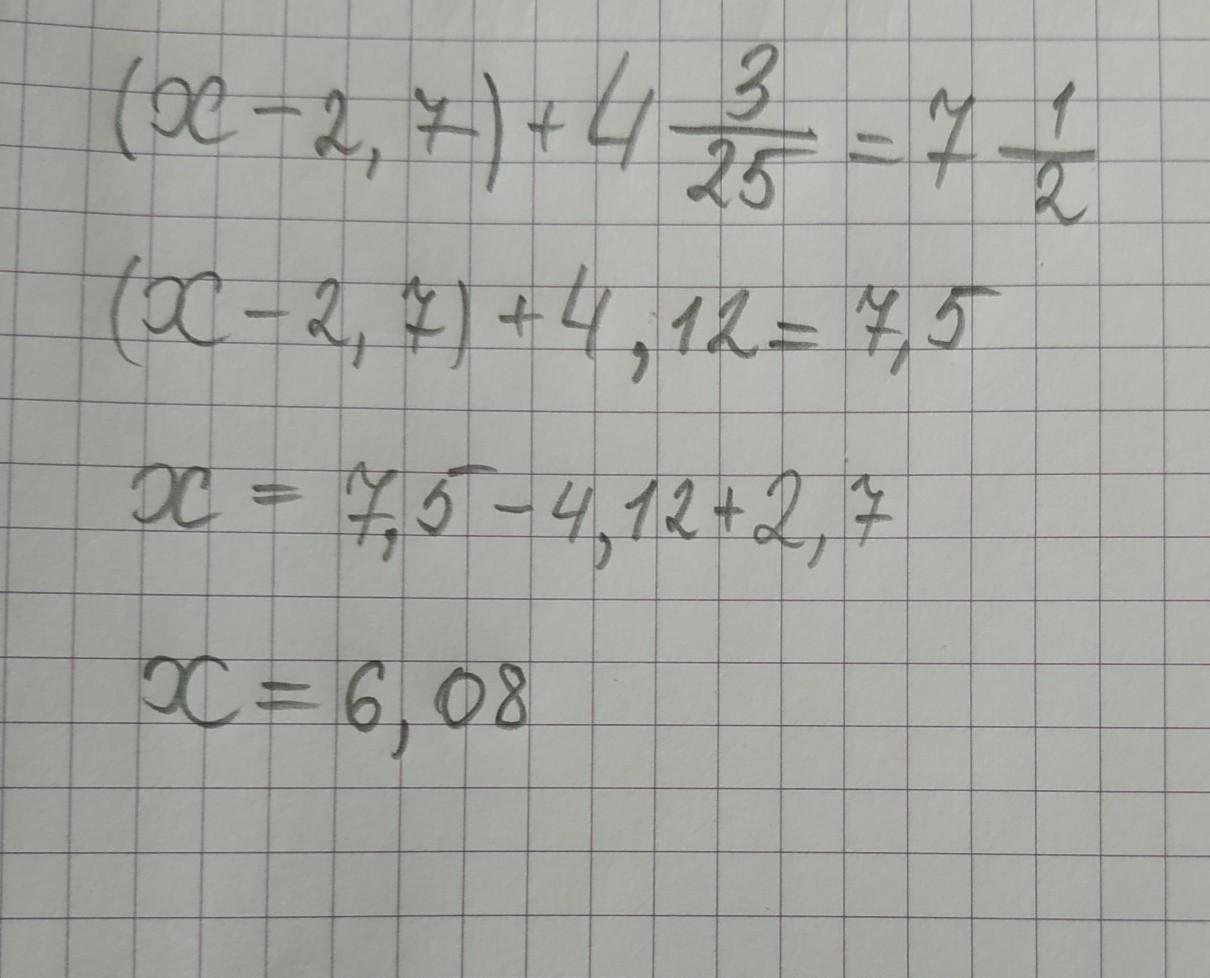 (x - 2,7) + 4 3/25 = 7 1/2
(x - 2,7) + 4,12 = 7,5
x = 7,5 - 4,12 + 2,7
x = 6,08